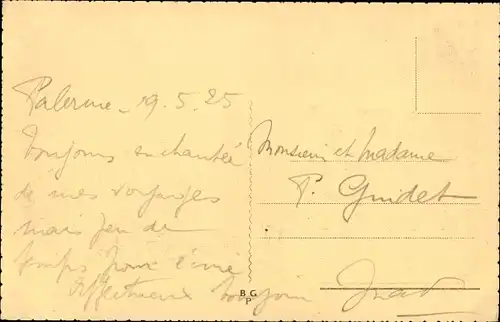 Palerme - 19.5.25
Toujours enchantée
de mes voyages
mais peu de
temps pour écrire
Affectueux bonjour
Monsieur et Madame
P. Guidet
B G
P